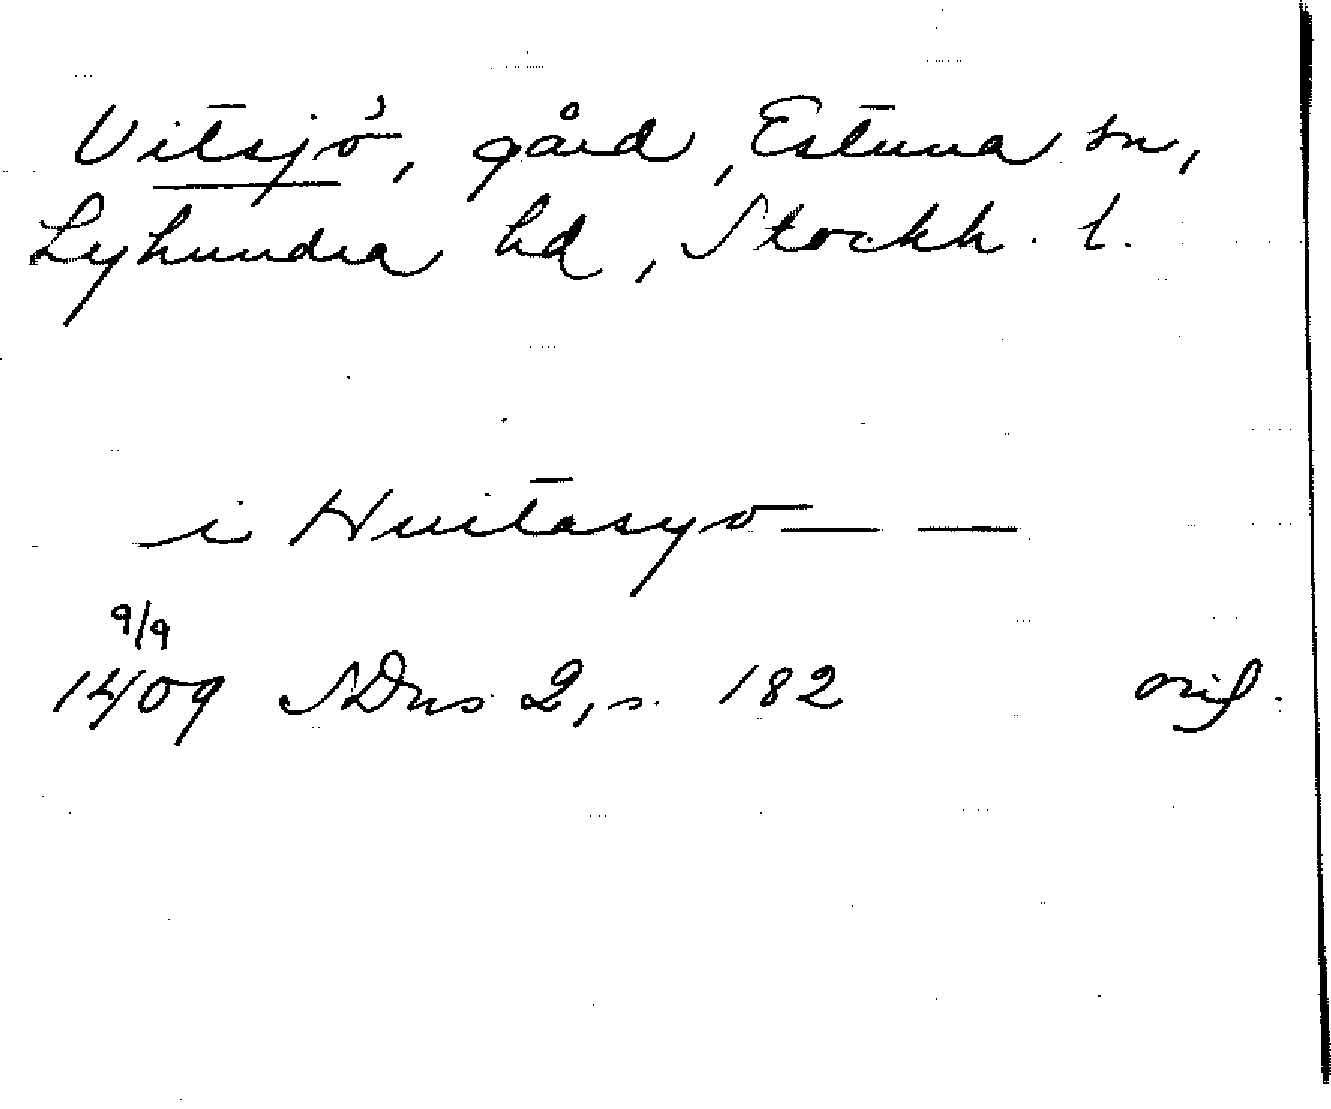 Vitsjö, gård, Estuna sn,
Lyhundra hd, Stockh. l.
i Huitasyo — —
9/9
1409 SDns 2, s. 182 orig.